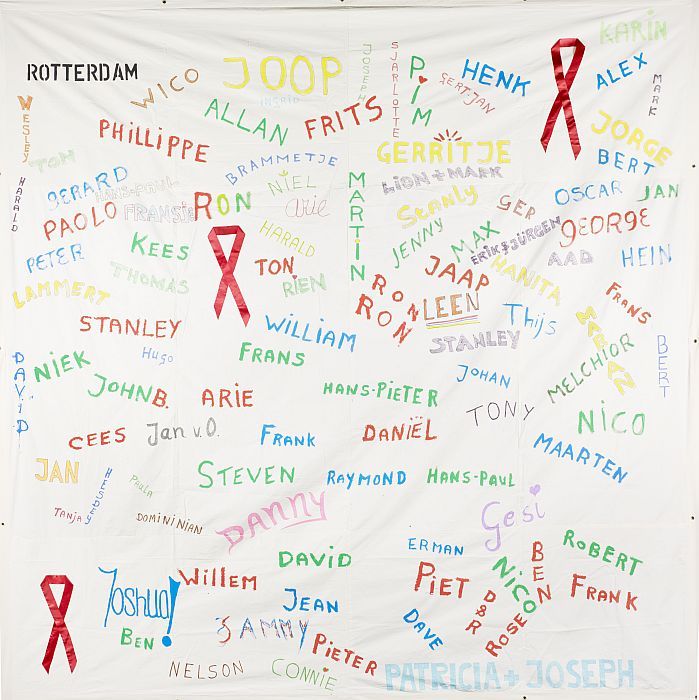 ROTTERDAM
WICO
JOOP
INGRID
JOSEPH
SJARLOTTE
PIM
GERTJAN
HENK
ALEX
KARIN
MARK
WESLEY
ALLAN
FRITS
PHILLIPPE
TOM
BRAMMETJE
GERRITJE
JORGE
BERT
HARALD
GERARD
HANS-PAUL
NIEL
MARTIN
LION+MARK
OSCAR
JAN
PAOLO
FRANSIE
RON
arie
Stanly
GER
GEORGE
PETER
KEES
HARALD
JENNY
MAX
ERIK+JÜRGEN
AAD
HEIN
LAMMERT
THOMAS
TON
RIEN
JAAP
HANITA
RON
RON
LEEN
FRANS
STANLEY
WILLIAM
Thijs
MARIAN
DAVID
NIEK
Hugo
FRANS
STANLEY
MELCHIOR
BERT
JOHN B.
ARIE
HANS-PIETER
JOHAN
TONY
NICO
CEES
Jan v.O.
FRANK
DANIËL
MAARTEN
JAN
HESLEY
Paula
STEVEN
RAYMOND
HANS-PAUL
Tanja
DOMININIAN
DANNY
Gesi
DAVID
ERMAN
BEN
ROBERT
Joshua!
Willem
PIET
NICO
FRANK
BEN
JEAN
D&R
ROSE
SAMMY
PIETER
DAVE
NELSON
CONNIE
PATRICIA + JOSEPH